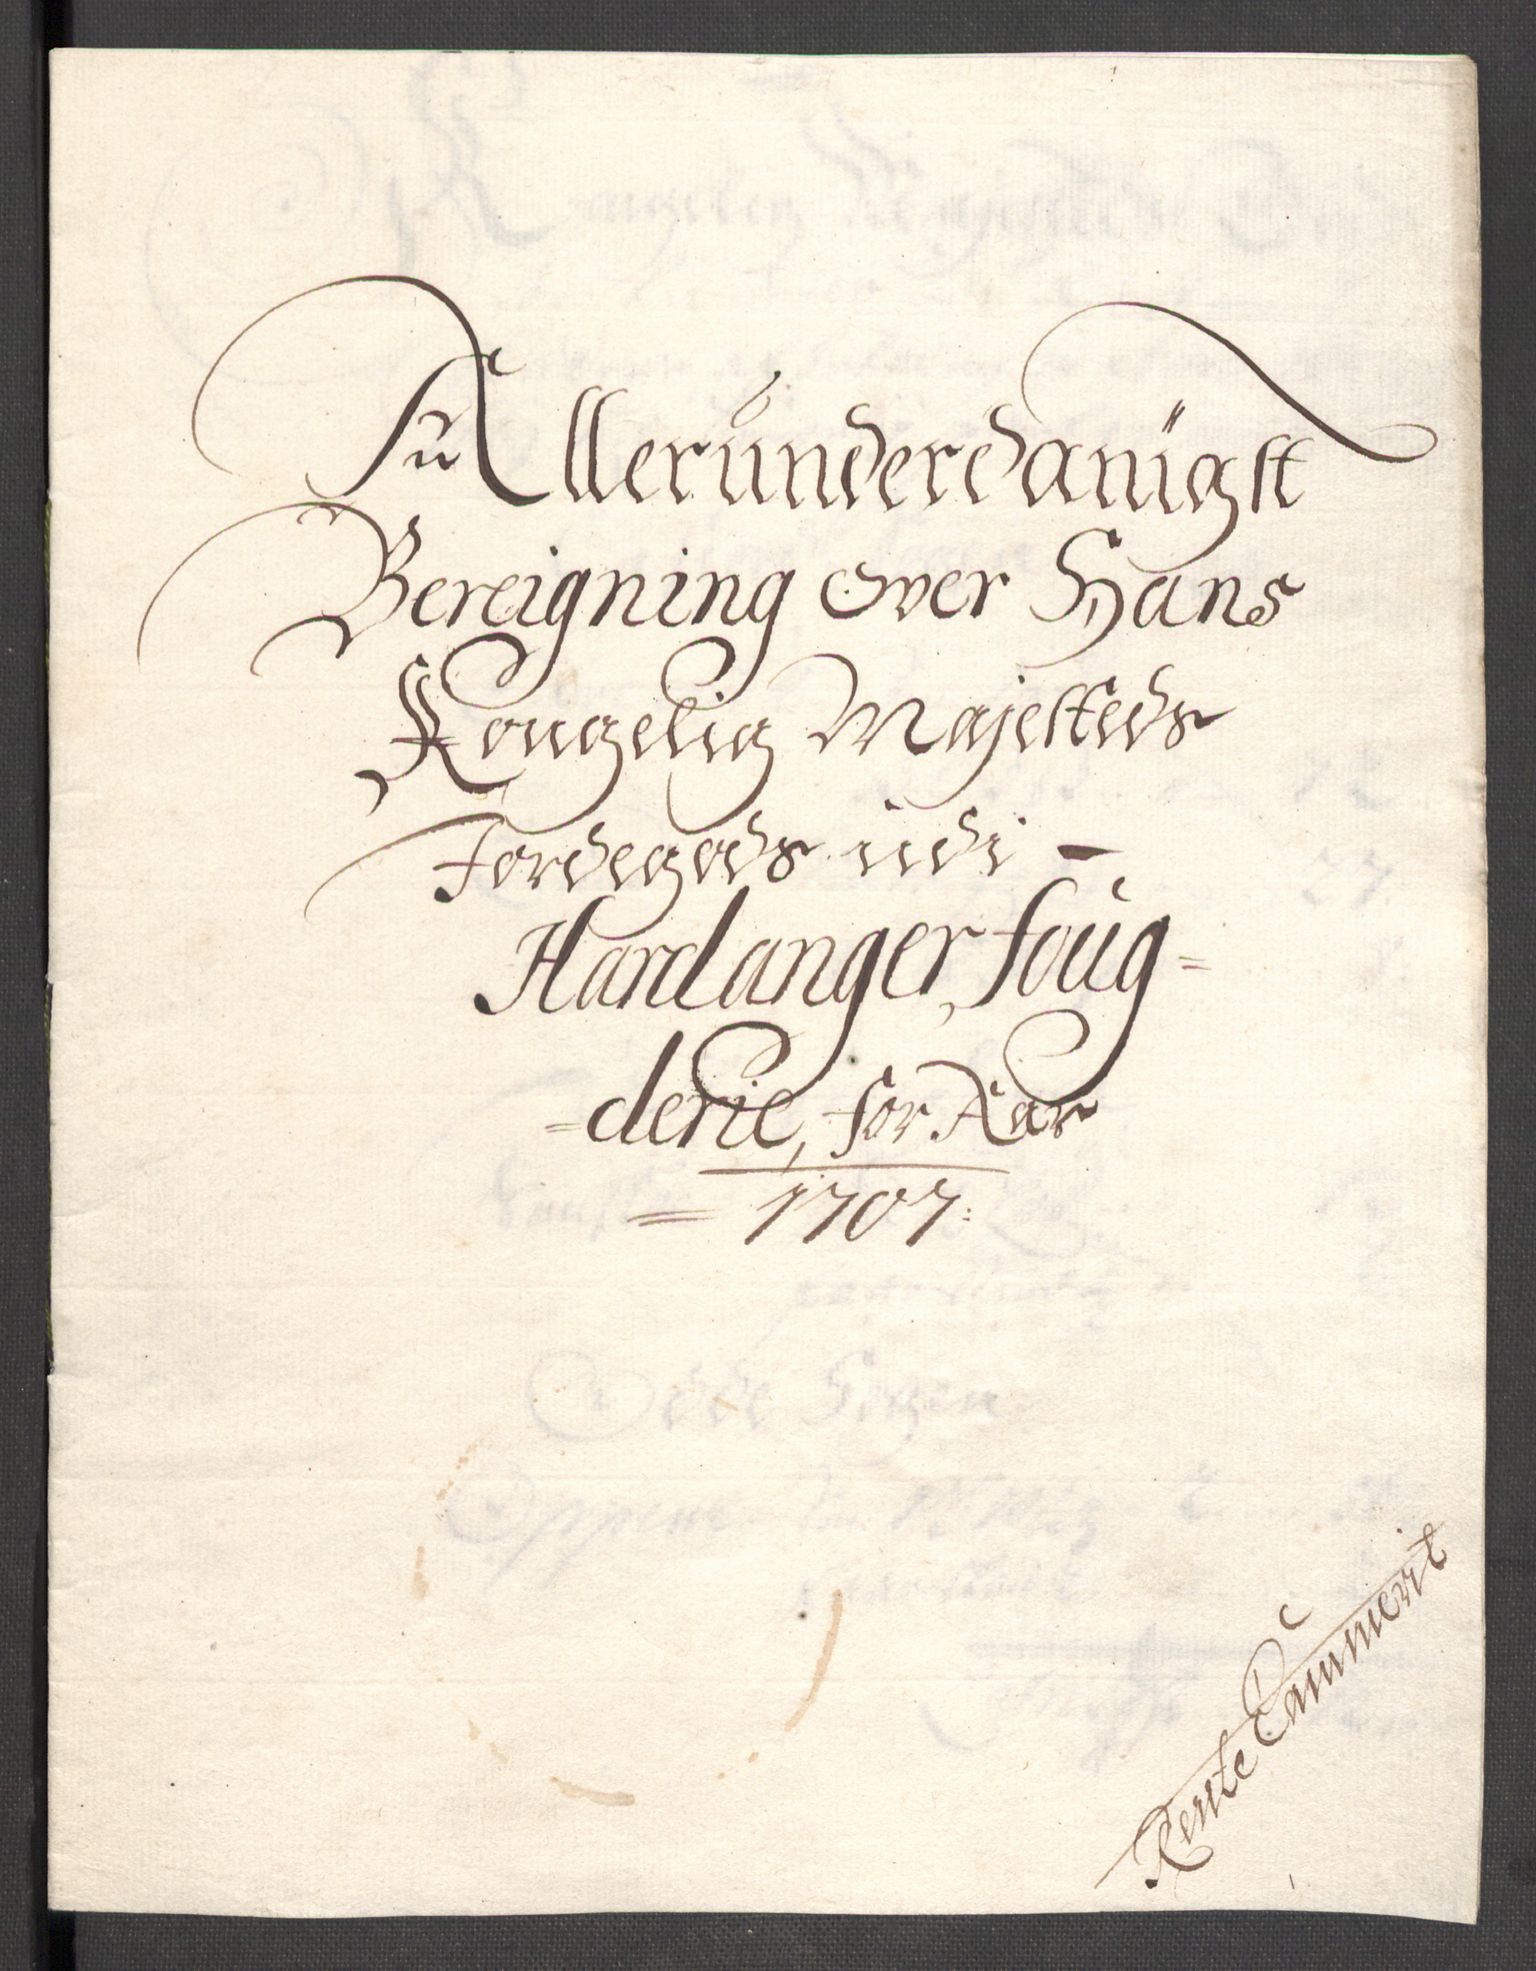 Allerunderdanigst
Bereigning over Hans
Kongelig Majesteds
Jordegods udi -
Hardanger foug=
=derie, for Aar
= 1707:
Rente Cammerit